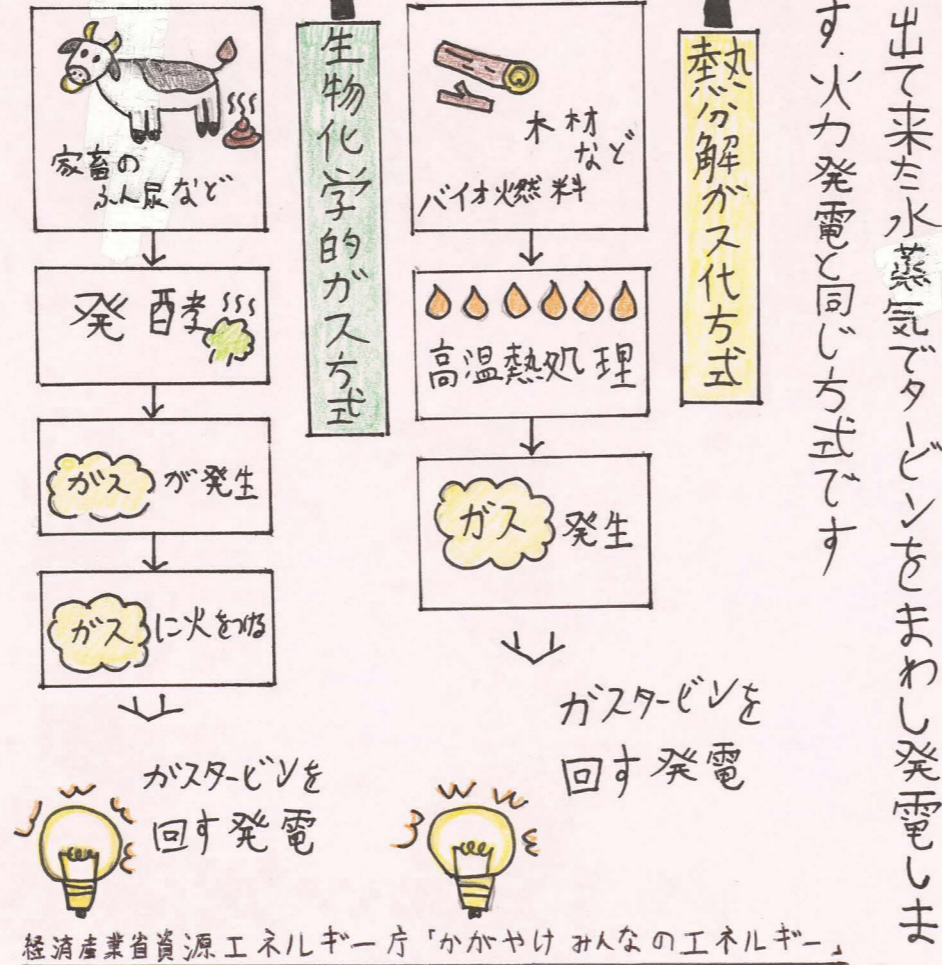 出て来た水蒸気でタービンをまわし発電しま
す.火力発電と同じ方式です
熱分解ガス代方式
木材
など
バイオ燃料
高温熱処理
ガス発生
ガスタービンを
回す発電
生物化学的ガス方式
家畜の
ふん尿など
発酵
ガスが発生
ガスに火をつける
ガスタービンを
回す発電
経済産業省資源エネルギー庁「かがやけみんなのエネルギー」